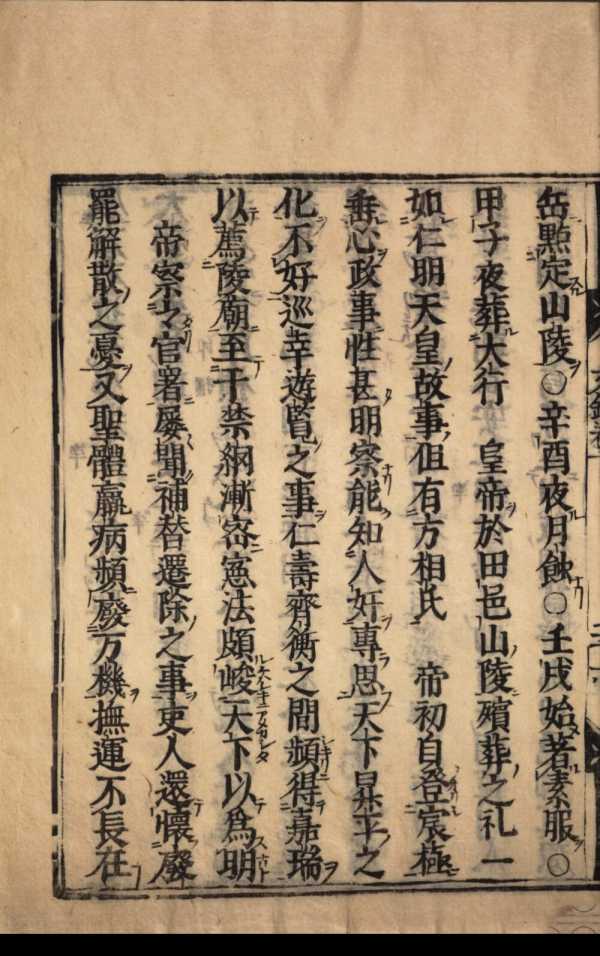 岳點定山陵○辛酉夜月蝕○壬戌始著素服○
甲子夜葬大行　皇帝於田邑山陵殯葬之礼一
如仁明天皇故事但有方相氏　帝初自登宸極
垂心政事性甚明察能知人奸專思天下昇平之
化不好巡幸遊覧之事仁壽齊衡之間頻得嘉瑞
以薦陵廟至于禁網漸密憲法頗峻天下以爲明
帝察々官署屡聞補替遷除之事吏人還懷廢
罷解散之憂又聖體羸病頻廢万機撫運不長在